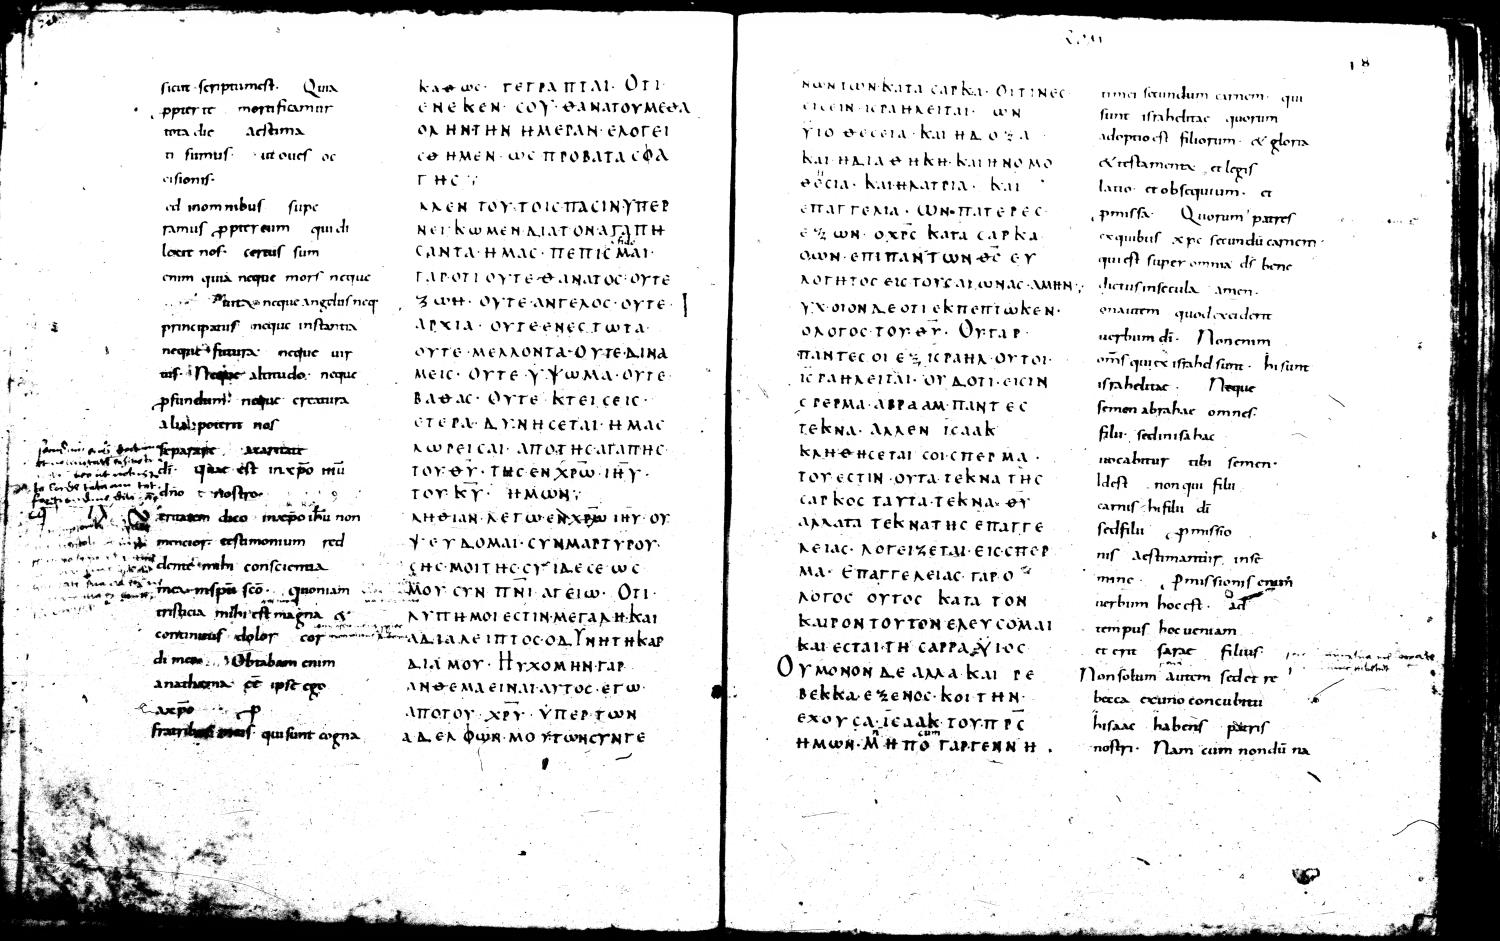 sicut scriptumest. Quia
ppter te mortificamur
tota die aestima
ti sumus. ut oues oc
cisionis.
ed inomnibus supe
ramus ppter eum qui di
lexit nos. certus sum
enim quia neque mors neque
uita neque angelus neq
principatus neque instantia
neque futura neque uir
tus. Neque altitudo. neque
pfundum. neque creatura
alia poterit nos
separare acaritate
di. quae est inxpo ihu
dno nostro.
eritatem dico inxpo ihu non
mencior. testimonium red
dente mihi conscientia
mea inspu sco. quoniam
tristicia mihi est magna &
continuus dolor cor
di meo. Obtabam enim
anathema ee ipse ego
axpo p
fratribus meis. qui sunt cogna
ΚΑΘΩϹ· ΓΕΓΡΑΠΤΑΙ· ΟΤΙ·
ΕΝΕΚΕΝ· ϹΟΥ· ΘΑΝΑΤΟΥΜΕΘΑ
ΟΛΗΝΤΗΝ ΗΜΕΡΑΝ· ΕΛΟΓΕΙ
ϹΘΗΜΕΝ· ΩϹ ΠΡΟΒΑΤΑ ϹΦΑ
ΓΗϹ
ΛΛΕΝ ΤΟΥΤΟΙϹ·ΠΑϹΙΝ·ΥΠΕΡ
ΝΕΙΚΩΜΕΝ ΔΙΑΤΟΝΑΓΑΠΗ
ϹΑΝΤΑ·ΗΜΑϹ· ΠΕΠΙϹΜΑΙ·
ΓΑΡΟΤΙ ΟΥΤΕ ΘΑΝΑΤΟϹ·ΟΥΤΕ
ΖΩΗ· ΟΥΤΕ·ΑΝΓΕΛΟϹ·ΟΥΤΕ
ΑΡΧΙΑ· ΟΥΤΕΕΝΕϹΤΩΤΑ·
ΟΥΤΕ·ΜΕΛΛΟΝΤΑ·ΟΥΤΕ ΔΙΝΑ
ΜΕΙϹ· ΟΥΤΕ ΥΨΩΜΑ·ΟΥΤΕ
ΒΑΘΑϹ· ΟΥΤΕ ΚΤΕΙϹΕΙϹ·
ΕΤΕΡΑ· ΔΥΝΗϹΕΤΑΙ·ΗΜΑϹ
ΧΩΡΕΙϹΑΙ· ΑΠΟΤΗϹ·ΑΓΑΠΗϹ·
ΤΟΥ·ΘΥ· ΤΗϹ ΕΝ ΧΡΩ·ΙΗΥ·
ΤΟΥ·ΚΥ· ΗΜΩΝ
ΛΗΘΙΑΝ·ΛΕΓΩ·ΕΝΧΡΩ ΙΗΥ·ΟΥ
ΨΕΥΔΟΜΑΙ·ϹΥΝΜΑΡΤΥΡΟΥ·
ϹΗϹ·ΜΟΙΤΗϹ·ϹΥΙΔΕϹΕΩϹ
ΜΟΥ ϹΥΝ ΠΝΙ ΑΓΕΙΩ· ΟΤΙ·
ΛΥΠΗ·ΜΟΙ ΕϹΤΙΝ·ΜΕΓΑΛΗ·ΚΑΙ
ΑΔΙΑΛΕΙΠΤΟϹ·ΟΔΥΝΗ ΤΗ ΚΑΡ
ΔΙΑ ΜΟΥ· ΗΥΧΟΜΗΝ·ΓΑΡ
ΑΝΘΕΜΑ ΕΙΝΑΙ·ΑΥΤΟϹ·ΕΓΩ·
ΑΠΟΤΟΥ·ΧΡΥ·ΥΠΕΡ·ΤΩΝ
ΑΔΕΛΦΩΝ·ΜΟΥ·ΤΩΝϹΥΝΓΕ
18
ΝΩΝ·ΤΩΝ·ΚΑΤΑ ϹΑΡΚΑ·ΟΙΤΙΝΕϹ
ΕΙϹΕΙΝ·ΙϹΡΑΗΛΕΙΤΑΙ· ΩΝ
ΥΙΟΘΕϹΕΙΑ·ΚΑΙ Η ΔΟΞΑ·
ΚΑΙ·ΗΔΙΑΘΗΚΗ·ΚΑΙΗΝΟΜΟ
ΘΕϹΙΑ· ΚΑΙ·ΗΛΑΤΡΙΑ· ΚΑΙ
ΕΠΑΓΓΕΛΙΑ· ΩΝ·ΠΑΤΕΡΕϹ
ΕΞΩΝ· ΟΧΡϹ ΚΑΤΑ ϹΑΡΚΑ
ΟΩΝ·ΕΠΙΠΑΝΤΩΝ ΘϹ ΕΥ
ΛΟΓΗΤΟϹ ΕΙϹ ΤΟΥϹ·ΑΙΩΝΑϹ·ΑΜΗΝ
ΥΧ·ΟΙΟΝΔΕΟΤΙ ΕΚΠΕΠΤΩΚΕΝ·
ΟΛΟΓΟϹ·ΤΟΥ·ΘΥ· ΟΥΓΑΡ·
ΠΑΝΤΕϹ ΟΙ ΕΞ ΙϹΡΑΗΛ·ΟΥΤΟΙ·
ΙϹΡΑΗΛΕΙΤΑΙ· ΟΥΔΟΤΙ·ΕΙϹΙΝ
ϹΠΕΡΜΑ·ΑΒΡΑΑΜ·ΠΑΝΤΕϹ
ΤΕΚΝΑ· ΑΛΛΕΝ ΙϹΑΑΚ
ΚΛΗΘΗϹΕΤΑΙ ϹΟΙ·ϹΠΕΡΜΑ·
ΤΟΥΕϹΤΙΝ·ΟΥΤΑ·ΤΕΚΝΑ ΤΗϹ
ϹΑΡΚΟϹ ΤΑΥΤΑ·ΤΕΚΝΑ·ΘΥ
ΑΛΛΑΤΑ ΤΕΚΝΑΤΗϹ ΕΠΑΓΓΕ
ΛΕΙΑϹ· ΛΟΓΕΙΖΕΤΑΙ·ΕΙϹ·ϹΠΕΡ
ΜΑ· ΕΠΑΓΓΕΛΕΙΑϹ·ΓΑΡ Ο
ΛΟΓΟϹ ΟΥΤΟϹ ΚΑΤΑ ΤΟΝ
ΚΑΙΡΟΝ ΤΟΥΤΟΝ ΕΛΕΥϹΟΜΑΙ
ΚΑΙ·ΕϹΤΑΙ·ΤΗ ϹΑΡΡΑ·ΥΙΟϹ
ΟΥΜΟΝΟΝ ΔΕ ΑΛΛΑ·ΚΑΙ ΡΕ
ΒΕΚΚΑ·ΕΞΕΝΟϹ·ΚΟΙΤΗΝ·
ΕΧΟΥϹΑ·ΙϹΑΑΚ·ΤΟΥ·ΠΡϹ
ΗΜΩΝ·ΜΗΠΟ ΓΑΡ·ΓΕΝΝΗ
timei secundum carnem· qui
sunt israhelitae quorum
adoptio est filiorum· & gloria
& testamenta et legis
latio et obsequium· et
pmissa· Quorum patres
exquibus xpc secundu carnem·
qui est super omnia ds bene
dictus insecula amen·
onautem quod exciderit
uerbum di· Non enim
oms qui ex israhel sunt· hi sunt
israhelitae· Neque
semen abrahae omnes·
filii· sed in isahac
uocabitur tibi semen·
Idest non qui filii
carnis hi filii di
sedfilii pmissio
nis aestimantur inse
mine· pmissionis enim
uerbum hoc est· ad
tempus hoc ueniam
et erit sarae filius
Non solum autem sed et re
becca exuno concubitu
hisaac habens patris
nostri· Nam cum nondu na